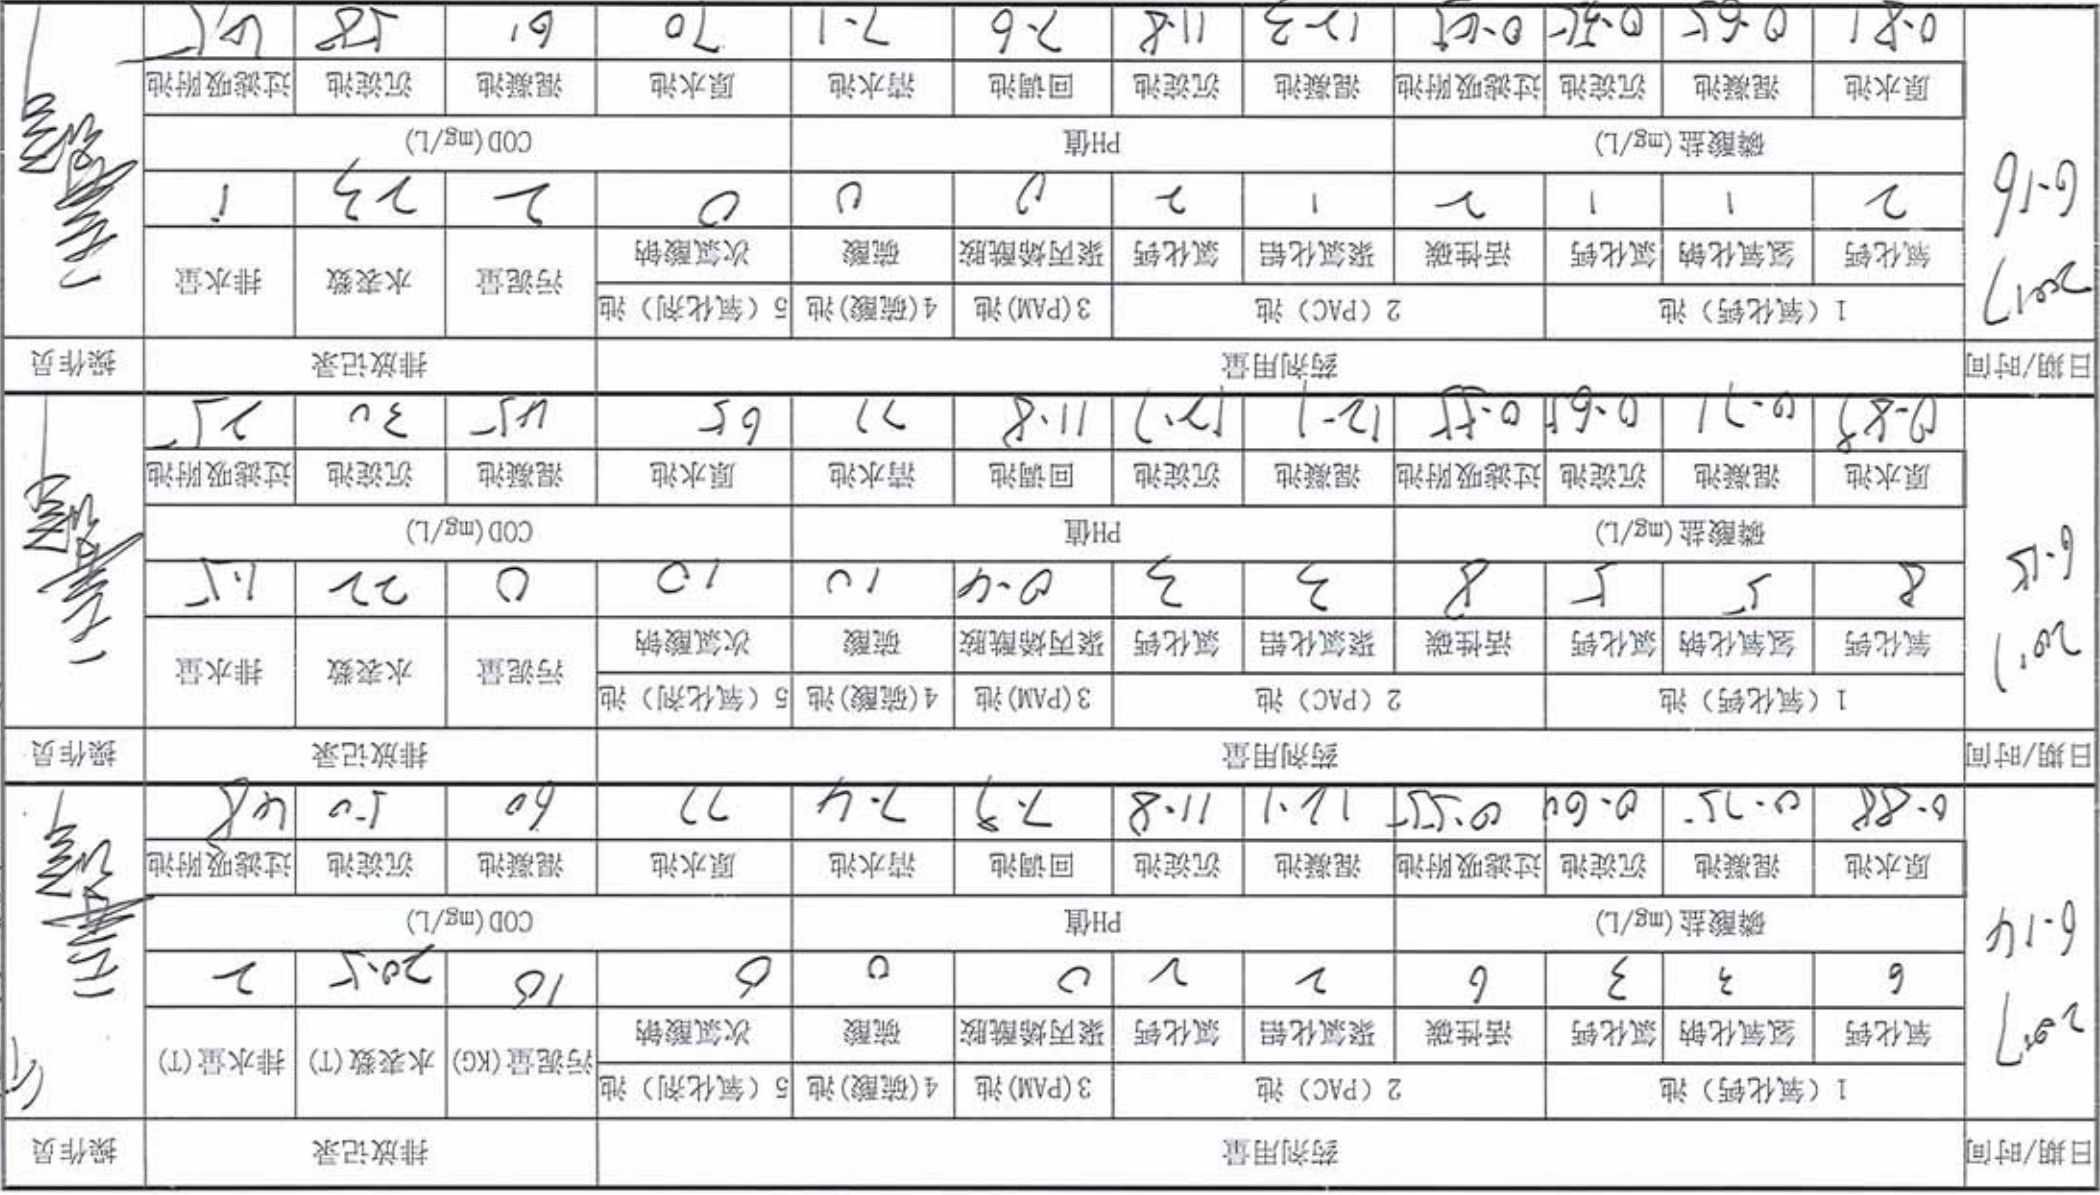 日期/时间 药剂用量 排放记录 操作员
1（氧化钙）池 2（PAC）池 3(PAM)池 4(硫酸)池 5（氧化剂）池 污泥量(KG) 水表数(T) 排水量(T)
氧化钙 氢氧化钠 氯化钙 活性碳 聚氯化铝 氯化钙 聚丙烯酰胺 硫酸 次氯酸钠
2017 6 3 3 6 2 2 0 0 0 10 20.5 2
6-14 磷酸盐(mg/L) PH值 COD(mg/L)
原水池 混凝池 沉淀池 过滤吸附池 混凝池 沉淀池 回调池 清水池 原水池 混凝池 沉淀池 过滤吸附池
0.88 0.75 0.60 0.55 12.1 11.8 7.4 77 60 50 48
日期/时间 药剂用量 排放记录 操作员
1（氧化钙）池 2（PAC）池 3(PAM)池 4(硫酸)池 5（氧化剂）池 污泥量 水表数 排水量
氧化钙 氢氧化钠 氯化钙 活性碳 聚氯化铝 氯化钙 聚丙烯酰胺 硫酸 次氯酸钠
2017 8 5 5 8 3 3 0.4 10 10 0 22 1.5
6-15 磷酸盐(mg/L) PH值 COD(mg/L)
原水池 混凝池 沉淀池 过滤吸附池 混凝池 沉淀池 回调池 清水池 原水池 混凝池 沉淀池 过滤吸附池
0.71 0.65 12.1 11.8 77 65 45 30 25
日期/时间 药剂用量 排放记录 操作员
1（氧化钙）池 2（PAC）池 3(PAM)池 4(硫酸)池 5（氧化剂）池 污泥量 水表数 排水量
氧化钙 氢氧化钠 氯化钙 活性碳 聚氯化铝 氯化钙 聚丙烯酰胺 硫酸 次氯酸钠
2017 2 1 1 2 1 2 0 0 0 2 23 1
6-16 磷酸盐(mg/L) PH值 COD(mg/L)
原水池 混凝池 沉淀池 过滤吸附池 混凝池 沉淀池 回调池 清水池 原水池 混凝池 沉淀池 过滤吸附池
0.81 0.65 12.3 11.8 7.6 7.1 70 61 58